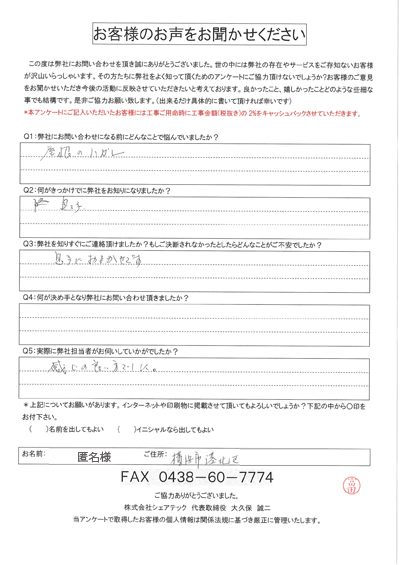 お客様のお声をお聞かせください
この度は弊社にお問い合わせを頂き誠にありがとうございました。世の中には弊社の存在やサービスをご存知ないお客様
が沢山いらっしゃいます。その方たちに弊社をよく知って頂くためのアンケートにご協力頂けないでしょうか?お客様のご意見
をお聞かせいただき今後の活動に反映させていただきたいと考えております。良かったこと、嬉しかったことなどの些細な
事でも結構です。是非ご協力お願い致します。(出来るだけ具体的に書いて頂ければ幸いです)
*本アンケートにご記入いただいたお客様には工事ご用命時に工事金額(税抜き)の 2%をキャッシュバックさせていただきます。
Q1:弊社にお問い合わせになる前にどんなことで悩んでいましたか?
屋根のハガレ
Q2:何がきっかけでに弊社をお知りになりましたか?
息子
Q3:弊社を知りすぐにご連絡頂けましたか?もしご決断されなかったとしたらどんなことがご不安でしたか?
息子におまかせです
Q4:何が決め手となり弊社にお問い合わせ頂きましたか?
Q5:実際に弊社担当者がお伺いしていかがでしたか?
感じの良い
* 上記についてお願いがあります。インターネットや印刷物に掲載させて頂いてもよろしいでしょうか?下記の中から〇印を
お付下さい。
( )名前を出してもよい ( )イニシャルなら出してもよい
お名前: 匿名様 ご住所: 横浜市港北区
FAX 0438-60-7774
ご協力ありがとうございました。
株式会社シェアテック 代表取締役 大久保 誠二
当アンケートで取得したお客様の個人情報は関係法規に基づき厳正に管理いたします。